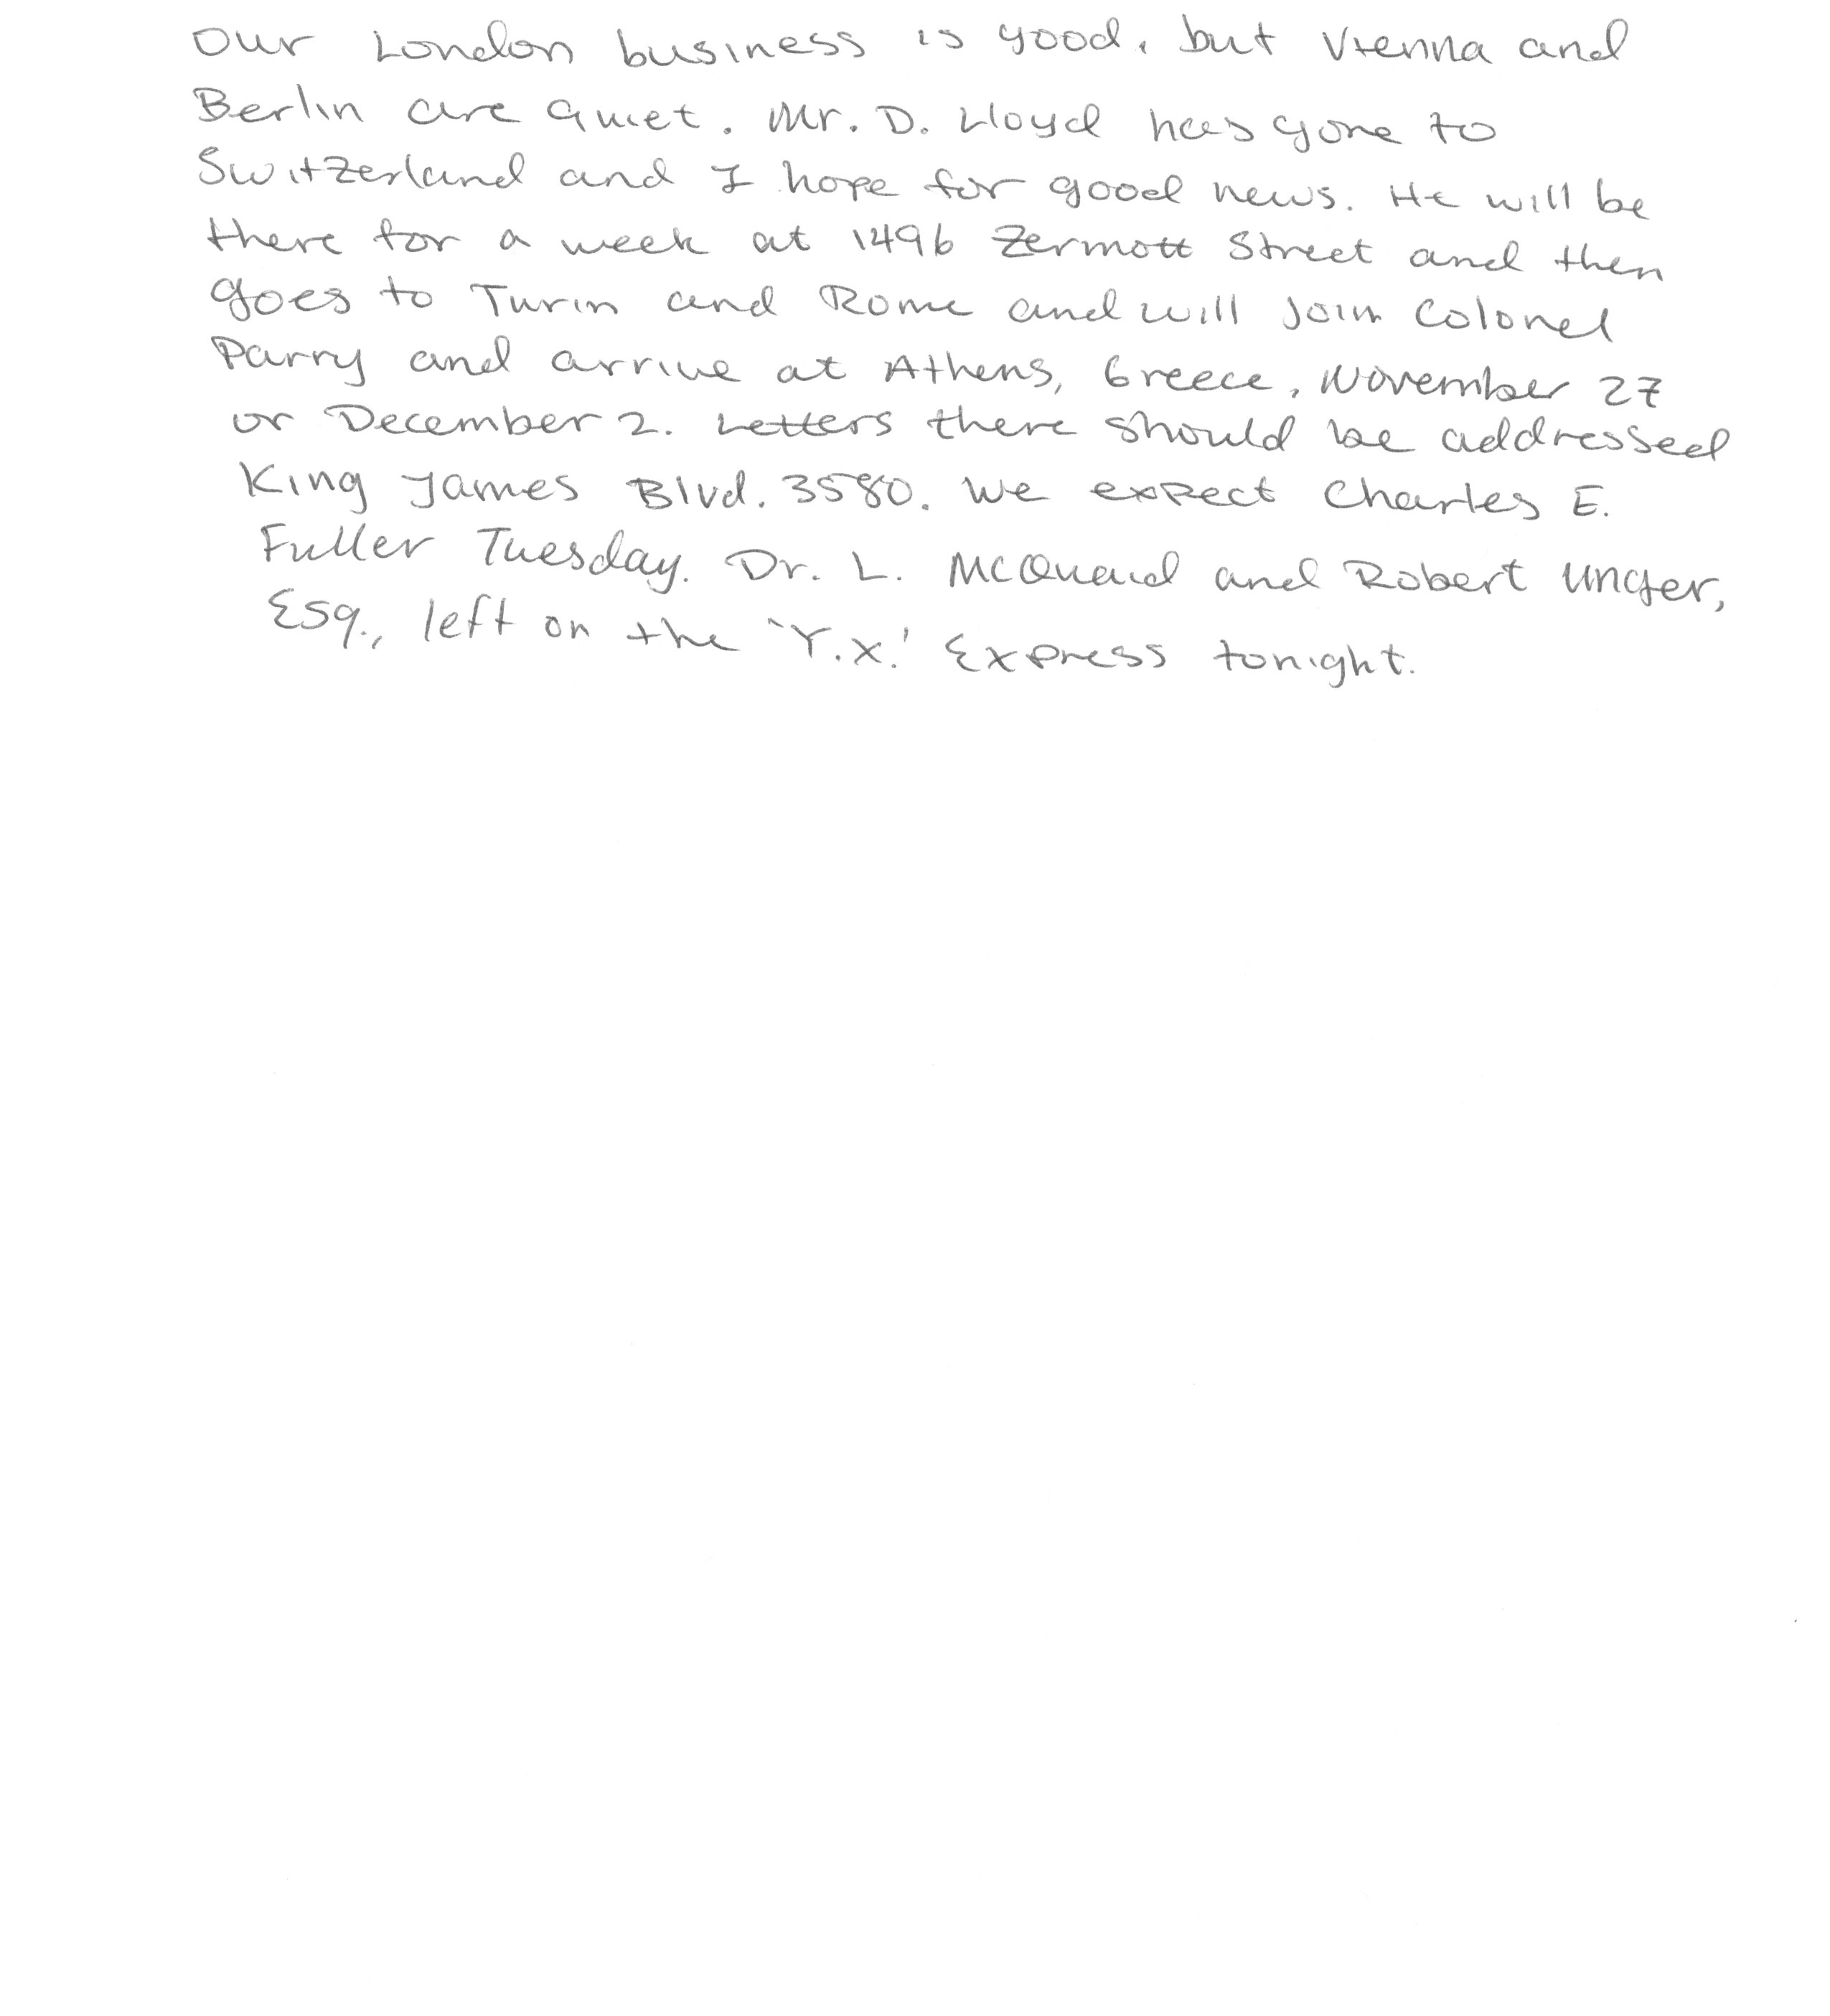 Our London business is good, but Vienna and
Berlin are quiet. Mr. D. Lloyd has gone to
Switzerland and I hope for good news. He will be
there for a week at 1496 Zermott Street and then
goes to Turin and Rome and will join Colonel
Parry and arrive at Athens, Greece, November 27
or December 2. Letters there should be addressed
King James Blvd. 3580. We expect Charles E.
Fuller Tuesday. Dr. L. McQuaid and Robert Unger,
Esq., left on the 'Y.X.' Express tonight.